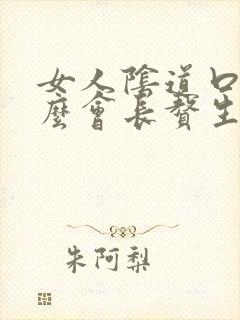 女人陰道口
麼會長贅生
朱阿梨